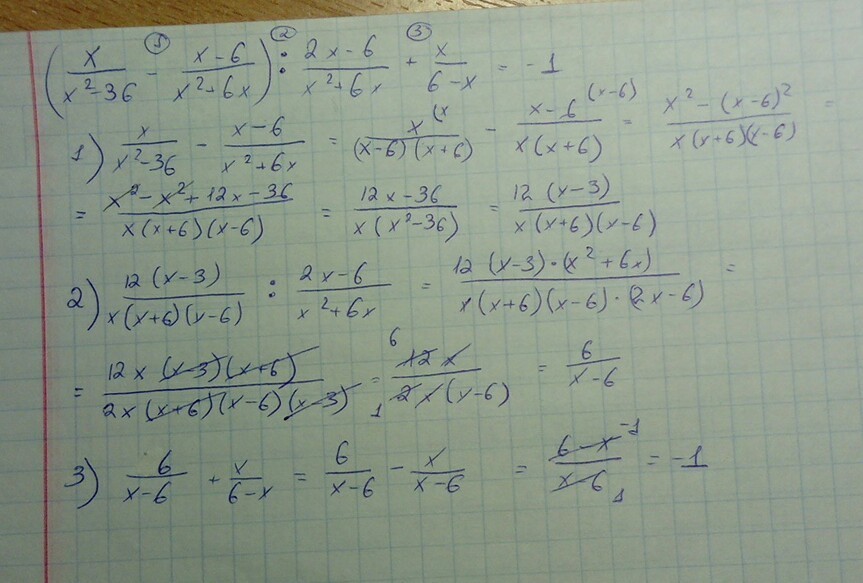 (x/(x²-36) ⑤ - (x-6)/(x²+6x)) ②: (2x-6)/(x²+6x) ③+ x/(6-x) = -1
1) x/(x²-36) - (x-6)/(x²+6x) = x (x/((x-6)(x+6)) - x-6 (x-6)/(x(x+6)) = (x²-(x-6)²)/(x(x+6)(x-6)) =
= (x²-x²+12x-36)/(x(x+6)(x-6)) = (12x-36)/(x(x²-36)) = 12(x-3)/(x(x+6)(x-6))
2) 12(x-3)/(x(x+6)(x-6)) : (2x-6)/(x²+6x) = 12(x-3)·(x²+6x)/(x(x+6)(x-6)·(2x-6)) =
= 12x(x-3)(x+6)/(2x(x+6)(x-6)(x-3)) = 6 12x/(1 2x(x-6)) = 6/(x-6)
3) 6/(x-6) + x/(6-x) = 6/(x-6) - x/(x-6) = (6-x) -1/((x-6) 1) = -1